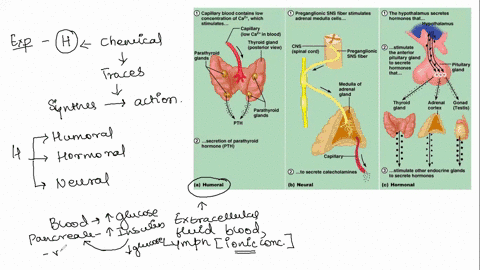 Exp - H ← Chemical
↓
Traces
↓
Synthes → action.
H → Humoral
→ Hormonal
→ Neural
Blood → ↑ glucose
Pancreas - ↑ Insulin
↓ glucose
Extracellular
fluid blood,
Lymph [ionic conc]
1 Capillary blood contains low
concentration of Ca2+, which
stimulates…
Capillary
(low Ca2+ in blood)
Thyroid gland
(posterior view)
Parathyroid
glands
Parathyroid
glands
PTH
2 …secretion of parathyroid
hormone (PTH)
(a) Humoral
1 Preganglionic SNS fiber stimulates
adrenal medulla cells…
CNS
(spinal cord)
Preganglionic
SNS fiber
Medulla of
adrenal
gland
Capillary
2 …to secrete catecholamines
(b) Neural
1 The hypothalamus secretes
hormones that…
Hypothalamus
2 …stimulate
the anterior
pituitary gland
to secrete
hormones
that…
Pituitary
gland
Thyroid
gland
Adrenal
cortex
Gonad
(Testis)
3 …stimulate other endocrine glands to
secrete hormones
(c) Hormonal